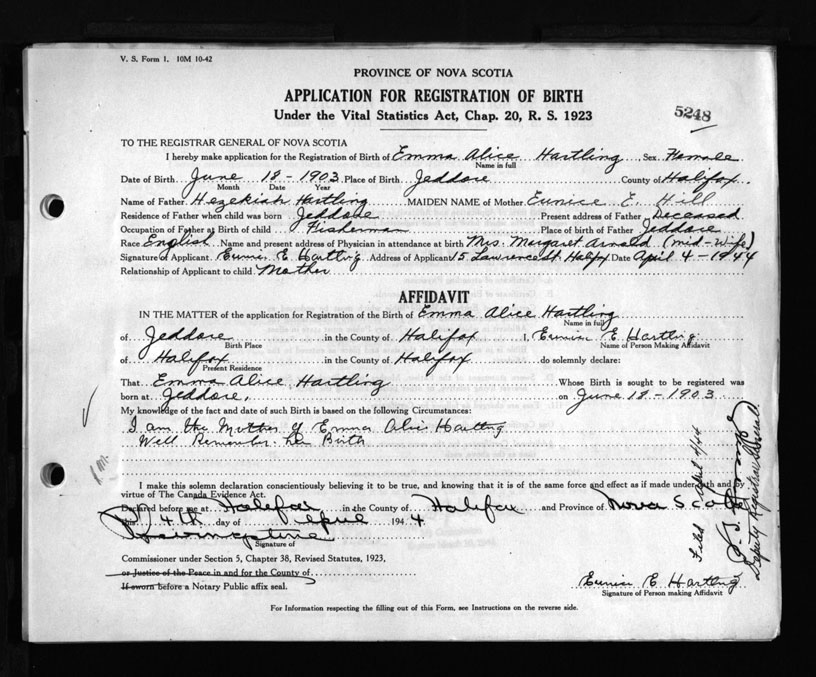 V. S. Form 1. 10M 10-42
PROVINCE OF NOVA SCOTIA
APPLICATION FOR REGISTRATION OF BIRTH
5248
Under the Vital Statistics Act, Chap. 20, R. S. 1923
TO THE REGISTRAR GENERAL OF NOVA SCOTIA
I hereby make application for the Registration of Birth of Emma Alice Hartling Sex Female
Name in full
Date of Birth June 18 - 1903 Place of Birth Jeddore County of Halifax
Month Date Year
Name of Father Hezekiah Hartling MAIDEN NAME of Mother Eunice E. Hill
Residence of Father when child was born Jeddore Present address of Father Deceased
Occupation of Father at Birth of child Fisherman Place of birth of Father Jeddore
Race English Name and present address of Physician in attendance at birth Mrs. Margaret Arnold (mid-wife)
Signature of Applicant Eunice E Hartling Address of Applicant 15 Lawrence St. Halifax Date April 4 - 1944
Relationship of Applicant to child Mother
AFFIDAVIT
IN THE MATTER of the application for Registration of the Birth of Emma Alice Hartling
Name in full
of Jeddore in the County of Halifax I, Eunice E Hartling
Birth Place Name of Person Making Affidavit
of Halifax in the County of Halifax do solemnly declare:
Present Residence
That Emma Alice Hartling Whose Birth is sought to be registered was
born at Jeddore, on June 18 - 1903
My knowledge of the fact and date of such Birth is based on the following Circumstances:
I am the Mother of Emma Alice Hartling
Well Remember her Birth
I make this solemn declaration conscientiously believing it to be true, and knowing that it is of the same force and effect as if made under oath and by
virtue of The Canada Evidence Act.
Declared before me at Halifax in the County of Halifax and Province of Nova Scotia
this 4th day of April 1944
Signature of
Commissioner under Section 5, Chapter 38, Revised Statutes, 1923,
or Justice of the Peace in and for the County of
If sworn before a Notary Public affix seal.
Eunice E Hartling
Signature of Person making Affidavit
For Information respecting the filling out of this Form, see Instructions on the reverse side.
Filed April 4/44
Deputy Registrar General